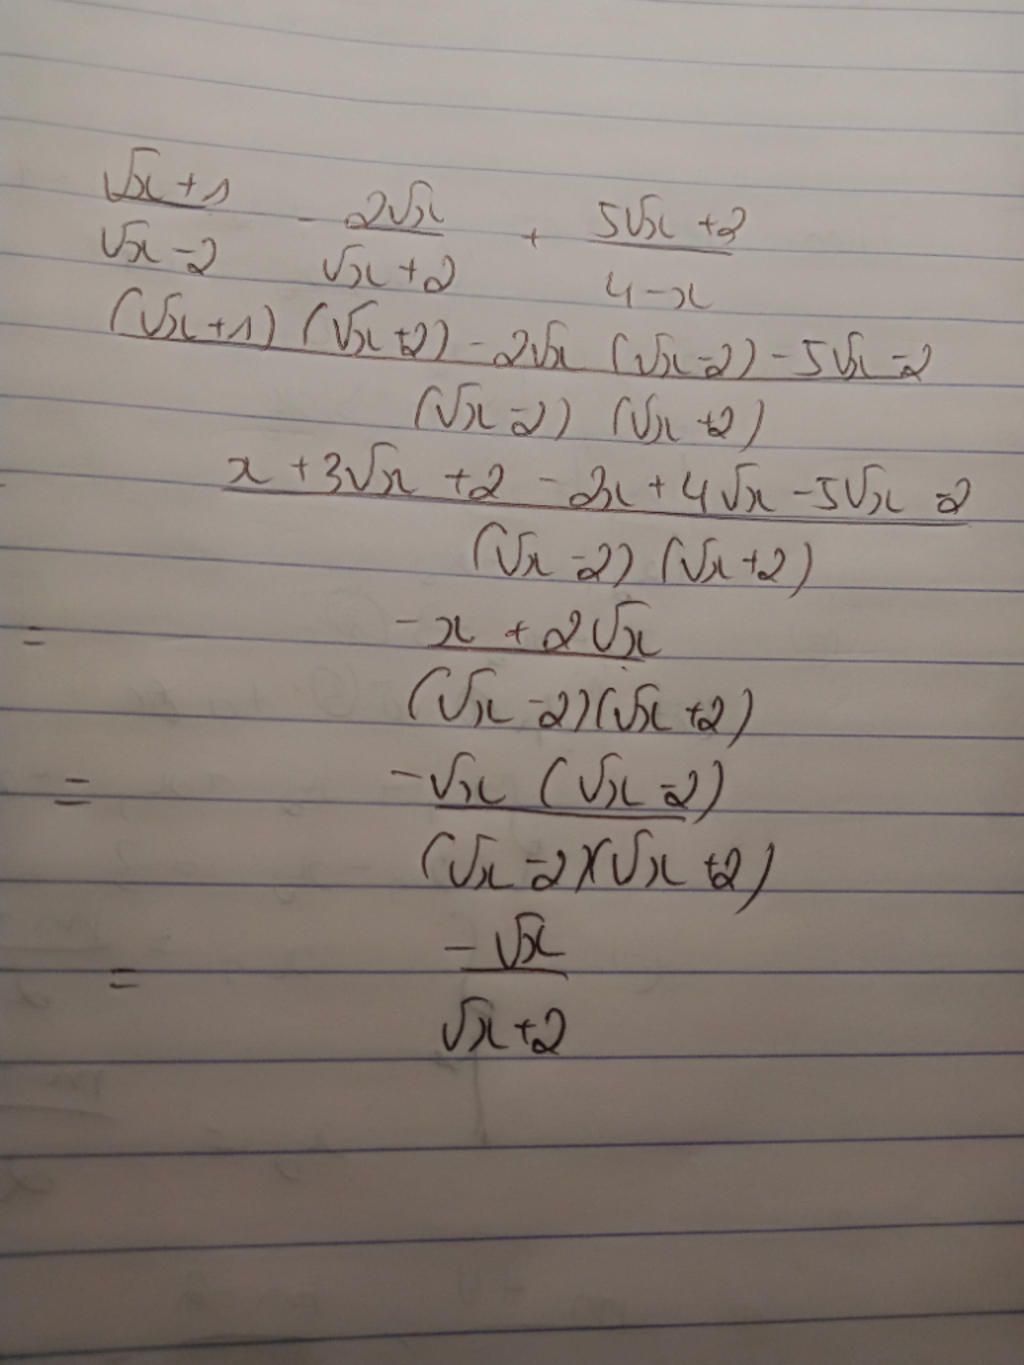 (√x + 1)/(√x - 2) - 2√x/(√x + 2) + (5√x + 2)/(4 - x)
((√x + 1) (√x + 2) - 2√x (√x - 2) - 5√x - 2)/((√x - 2) (√x + 2))
(x + 3√x + 2 - 2x + 4√x - 5√x - 2)/((√x - 2) (√x + 2))
= (-x + 2√x)/((√x - 2)(√x + 2))
= (-√x (√x - 2))/((√x - 2)(√x + 2))
= (-√x)/(√x + 2)